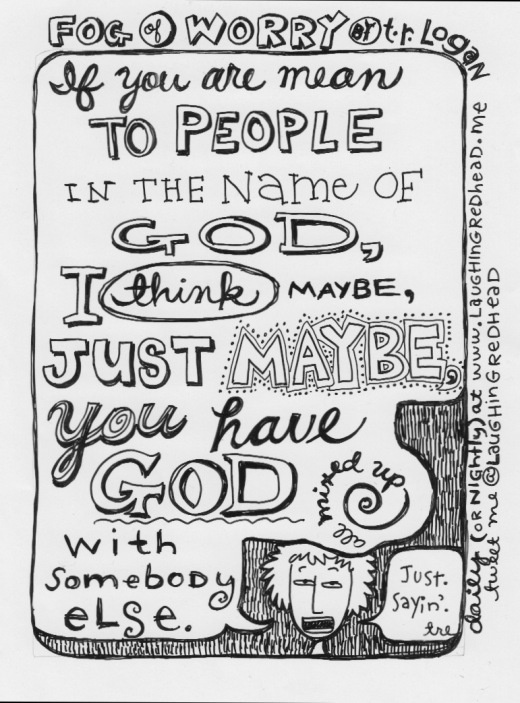 FOG of WORRY BY t.r. Logan
If you are mean
TO PEOPLE
IN THE Name OF
GOD,
I think MAYBE,
JUST MAYBE,
you have
GOD
all mixed up
with
somebody
eLSe.
Just.
Sayin'.
tre
daily (OR NIGHTLY) at www.LAUGHINGREDHEAD.me
tweet me @LAUGHINGREDHEAD